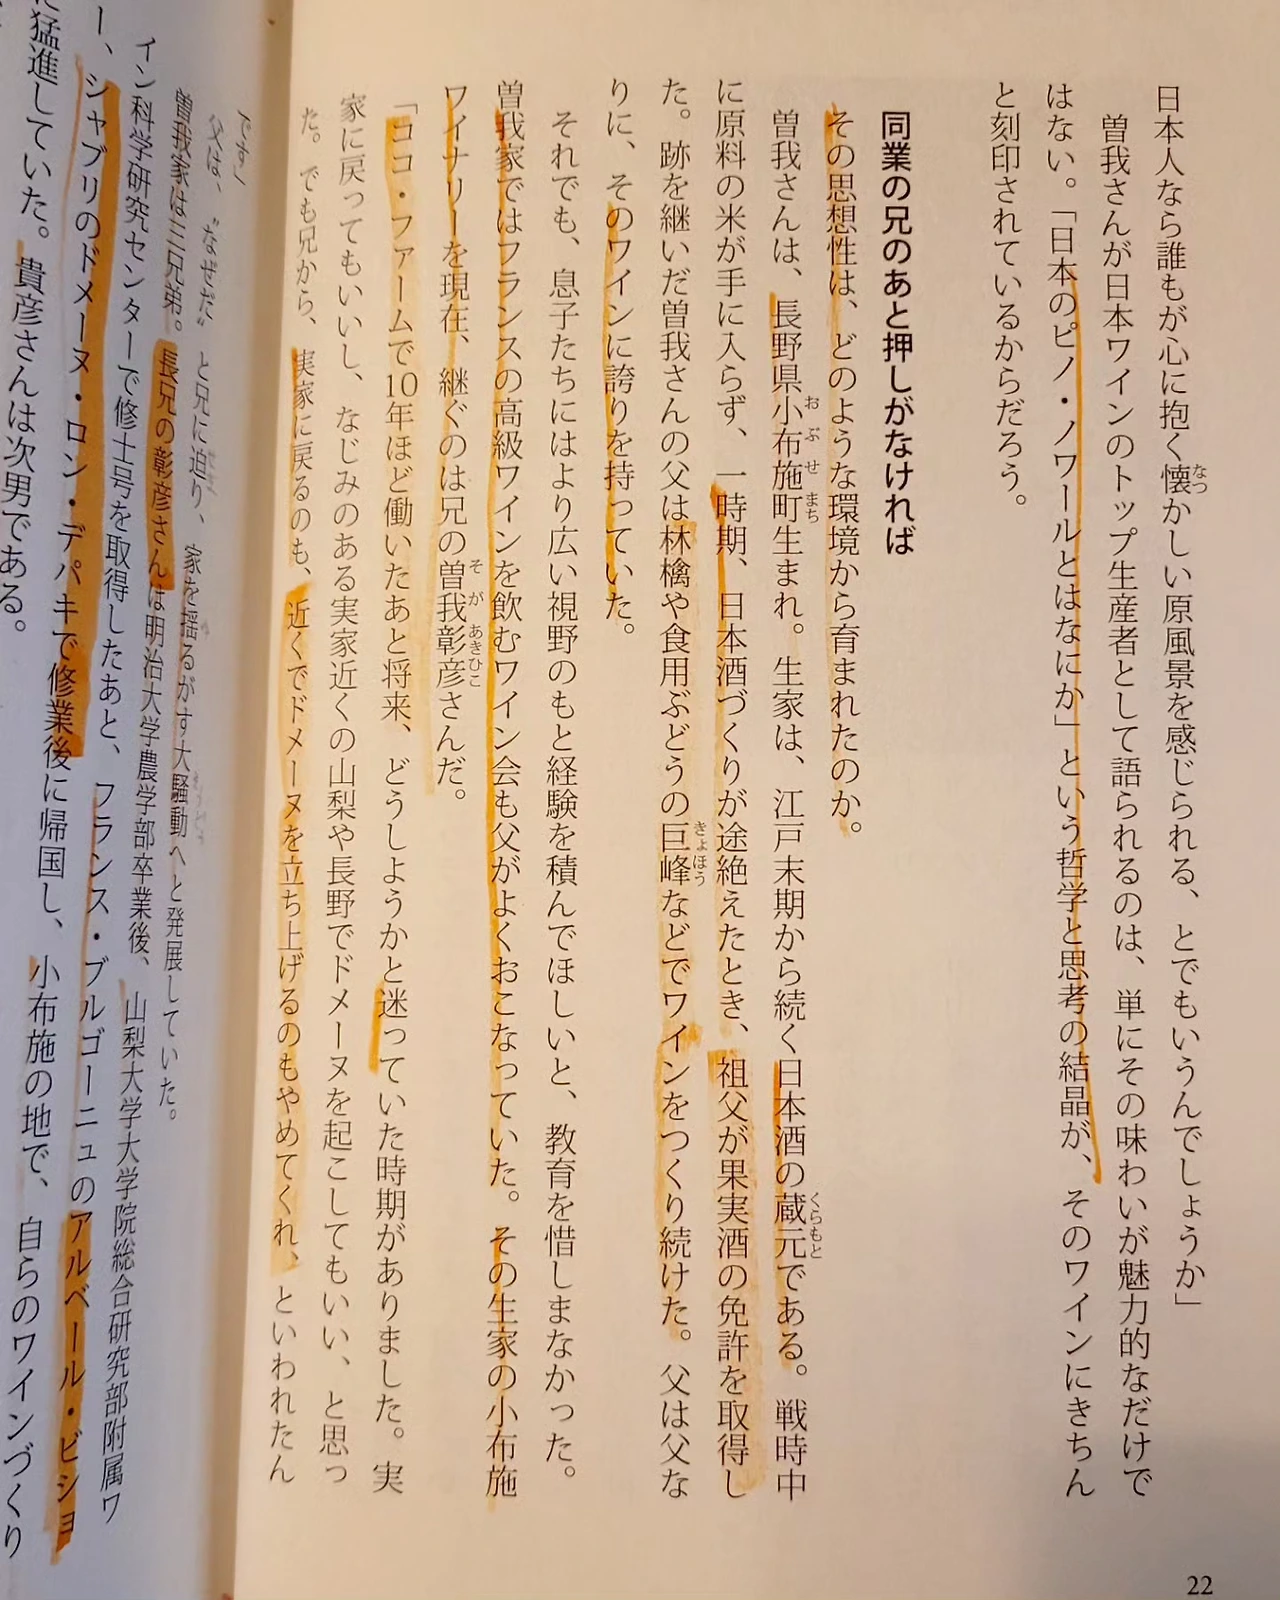 日本人なら誰もが心に抱く懐かしい原風景を感じられる、とでもいうんでしょうか」
なつ
曽我さんが日本ワインのトップ生産者として語られるのは、単にその味わいが魅力的なだけで
はない。「日本のピノ・ノワールとはなにか」という哲学と思考の結晶が、そのワインにきちん
と刻印されているからだろう。
同業の兄のあと押しがなければ
その思想性は、どのような環境から育まれたのか。
曽我さんは、長野県小布施町生まれ。生家は、江戸末期から続く日本酒の蔵元である。戦時中
おぶせまち
くらもと
に原料の米が手に入らず、一時期、日本酒づくりが途絶えたとき、祖父が果実酒の免許を取得し
た。跡を継いだ曽我さんの父は林檎や食用ぶどうの巨峰などでワインをつくり続けた。父は父な
きょほう
りに、そのワインに誇りを持っていた。
それでも、息子たちにはより広い視野のもと経験を積んでほしいと、教育を惜しまなかった。
曽我家ではフランスの高級ワインを飲むワイン会も父がよくおこなっていた。その生家の小布施
ワイナリーを現在、継ぐのは兄の曽我彰彦さんだ。
そがあきひこ
「ココ・ファームで10年ほど働いたあと将来、どうしようかと迷っていた時期がありました。実
家に戻ってもいいし、なじみのある実家近くの山梨や長野でドメーヌを起こしてもいい、と思っ
た。でも兄から、実家に戻るのも、近くでドメーヌを立ち上げるのもやめてくれ、といわれたん
22
です」
父は、〝なぜだ〟と兄に迫り、家を揺るがす大騒動へと発展していた。
曽我家は三兄弟。長兄の彰彦さんは明治大学農学部卒業後、山梨大学大学院総合研究部附属ワ
イン科学研究センターで修士号を取得したあと、フランス・ブルゴーニュのアルベール・ビショ
ー、シャブリのドメーヌ・ロン・デパキで修業後に帰国し、小布施の地で、自らのワインづくり
に猛進していた。貴彦さんは次男である。